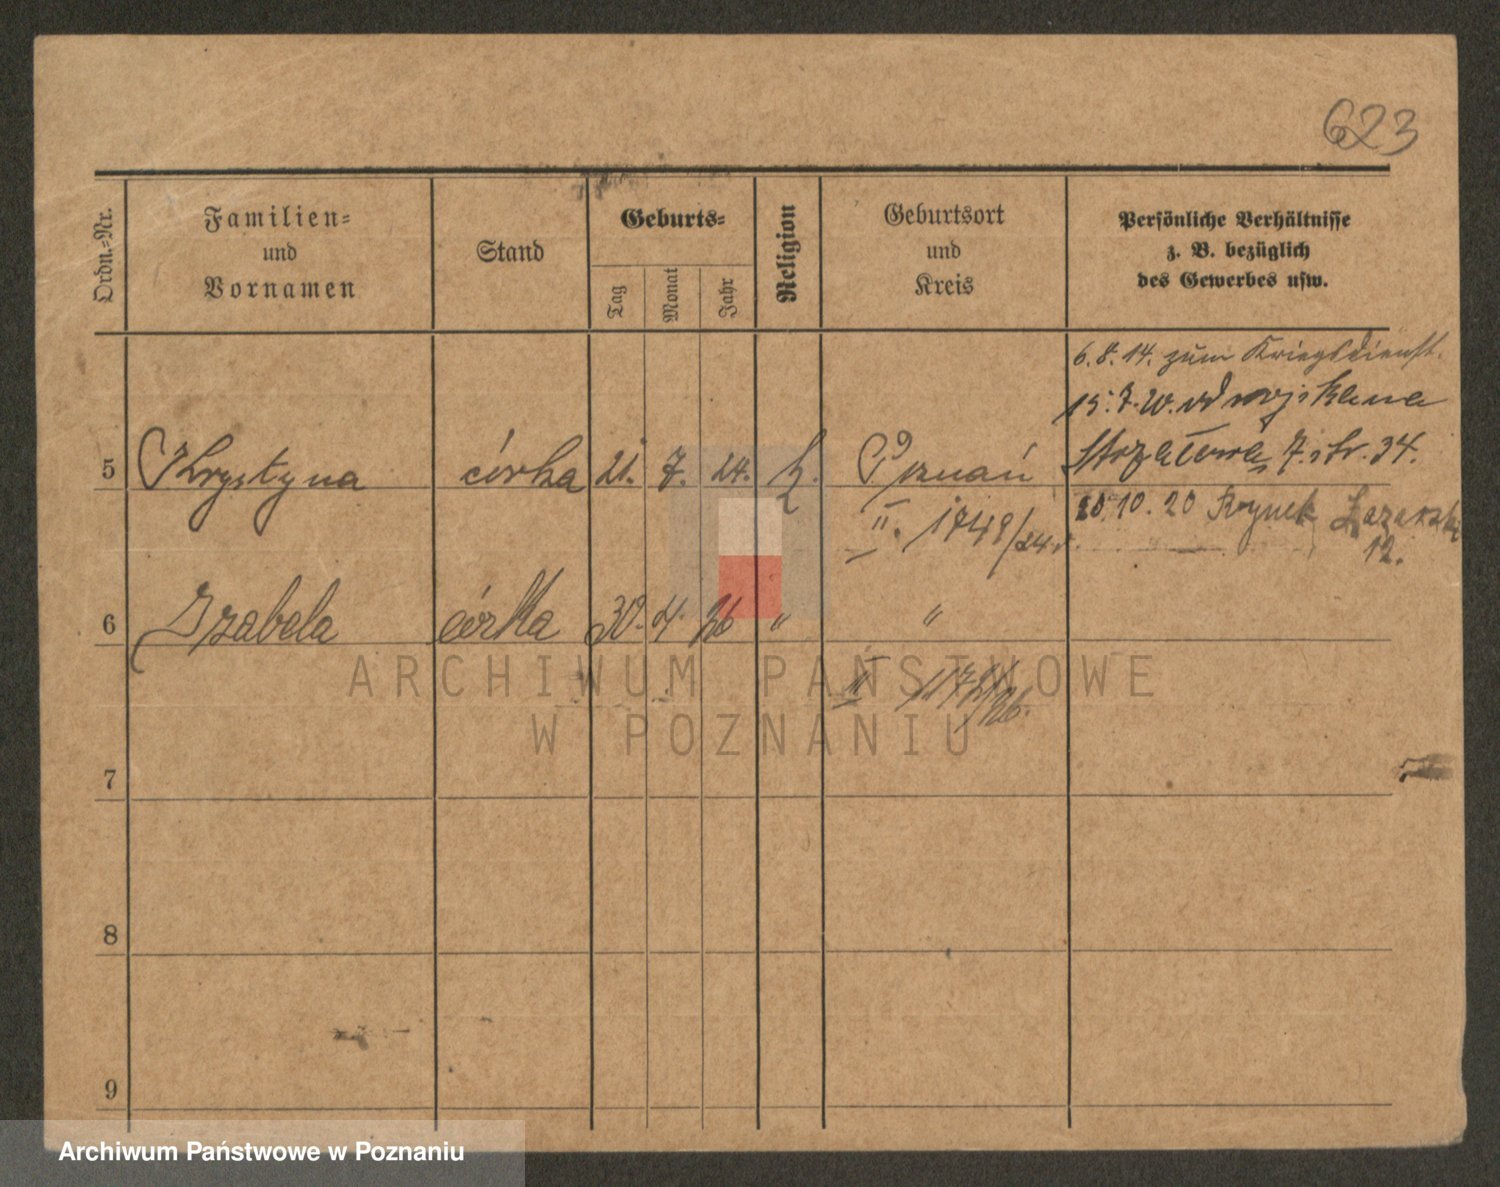 623
Ordn.-Nr.
Familien-
und
Vornamen
Stand
Geburts-
Tag
Monat
Jahr
Religion
Geburtsort
und
Kreis
Persönliche Verhältnisse
z. B. bezüglich
des Gewerbes usw.
6.8.14. zum Kriegsdienst.
15.7.20. od wojska na
5 Krystyna córka 21. 7. 24. k. Poznań
7. str. 34.
II. 1749/24
20.10.20 Rynek Łazarski
12.
6 Izabela córka 30. 4. 26 " "
II
ARCHIWUM PAŃSTWOWE
W POZNANIU
7
8
9
Archiwum Państwowe w Poznaniu